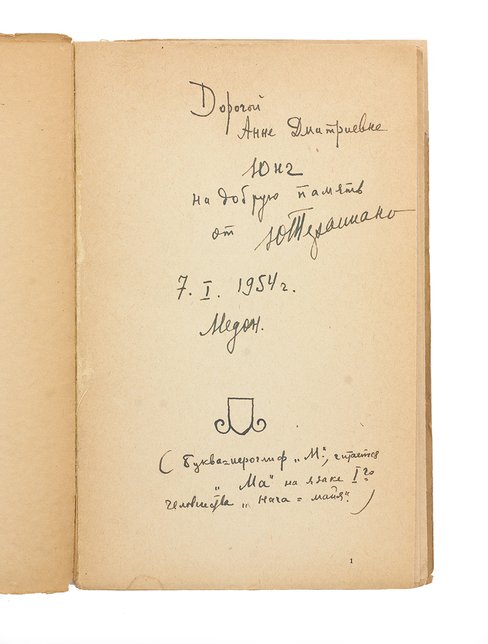 Дорогой
Анне Дмитриевне
Юнг
на добрую память
от Ю Терапиано
7. I. 1954 г.
Медон.
(Буква-иероглиф „М“, читается
„Ма“ на языке I го
человечества „нага = майя“.)
1